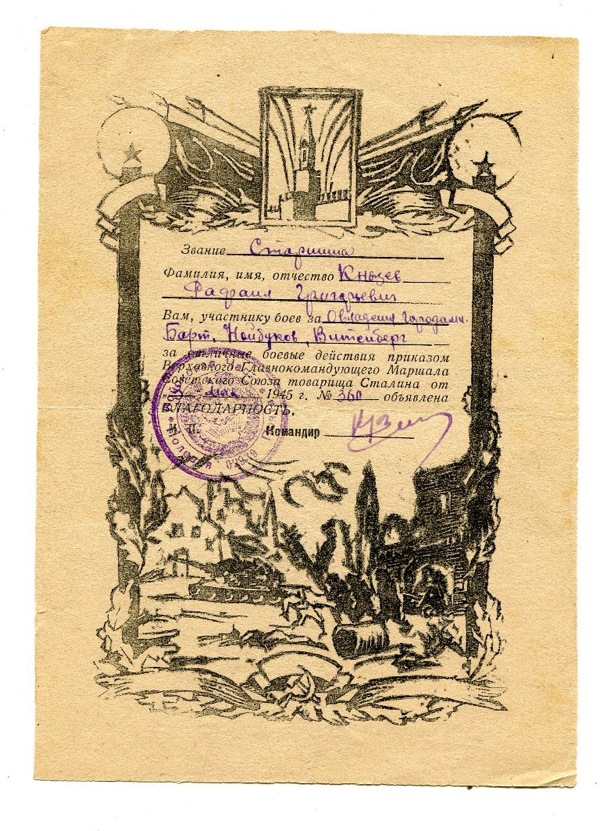 Звание Старшина
Фамилия, имя, отчество Князев
Рафаил Григорьевич
Вам, участнику боев за овладение городами
Барт, Нойбуков, Витенберг
за отличные боевые действия приказом
Верховного Главнокомандующего Маршала
Советского Союза товарища Сталина от
мая 1945 г. № 360 объявлена
БЛАГОДАРНОСТЬ.
М. П. Командир